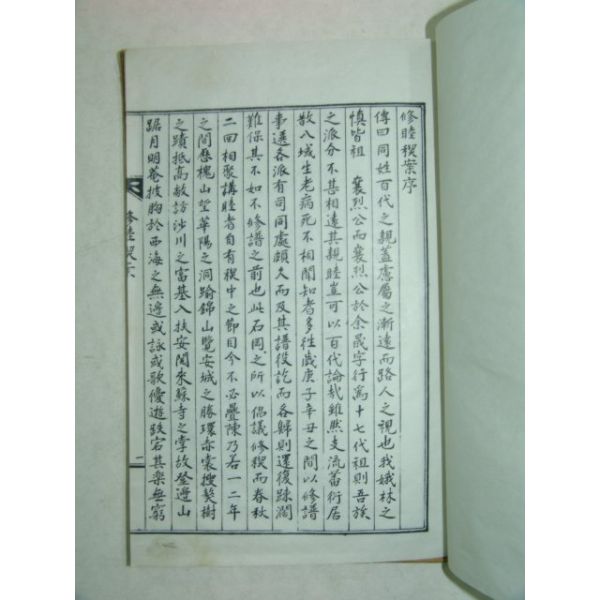 修睦稧案序
傳曰同姓百代之親蓋慮屬之漸遠而路人之視也我娥林之
愼皆祖 襄烈公而襄烈公於余晟字行爲十七代祖則吾族
之派分不甚相遠其親睦豈可以百代論哉雖然支流蕃衍居
散八域生老病死不相聞知者多往歲庚子辛丑之間以修譜
事選各派有司同處頗久而及其譜役訖而各歸則還復踈濶
難保其不如不修譜之前也此石岡之所以倡議修稧而春秋
二回相聚講睦者自有稧中之節目今不必疊陳乃若一二年
之間歷槐山望華陽之洞踰錦山覽安城之勝環赤裳搜契樹
之蹟抵高敞訪沙川之富基入扶安閱來蘇寺之掌故登邊山
踞月明菴披胸於西海之無邊或詠或歌優遊跌宕其樂無窮
修睦稧案
一